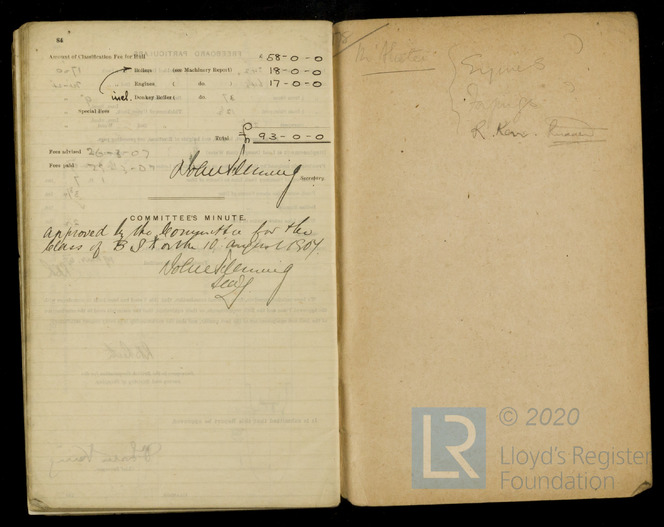 84
Amount of Classification Fee for Hull £ 58-0-0
Boilers (see Machinery Report) 18-0-0
Engines ( do. ) 17-0-0
incl. Donkey Boiler ( do.
Special Fees
Total £ 93-0-0
Fees advised 26-8-07
Fees paid
Secretary.
COMMITTEE'S MINUTE.
approved by the Committee for the
Class of B S * on the 10 August 1907.
Secy
Mr
Signes
R. Kerr.
© 2020
LR
Lloyd's Register
Foundation